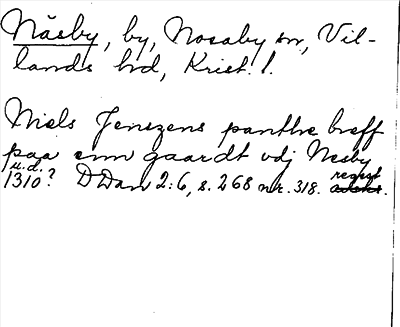 Näsby, by, Nosaby sn, Vil-
lands hd, Krist. l.
Niels Jenszens panthe breff
paa enn gaardt vdj Nesby
u.d.
1310? DDan 2:6, s. 268 nr. 318. regest